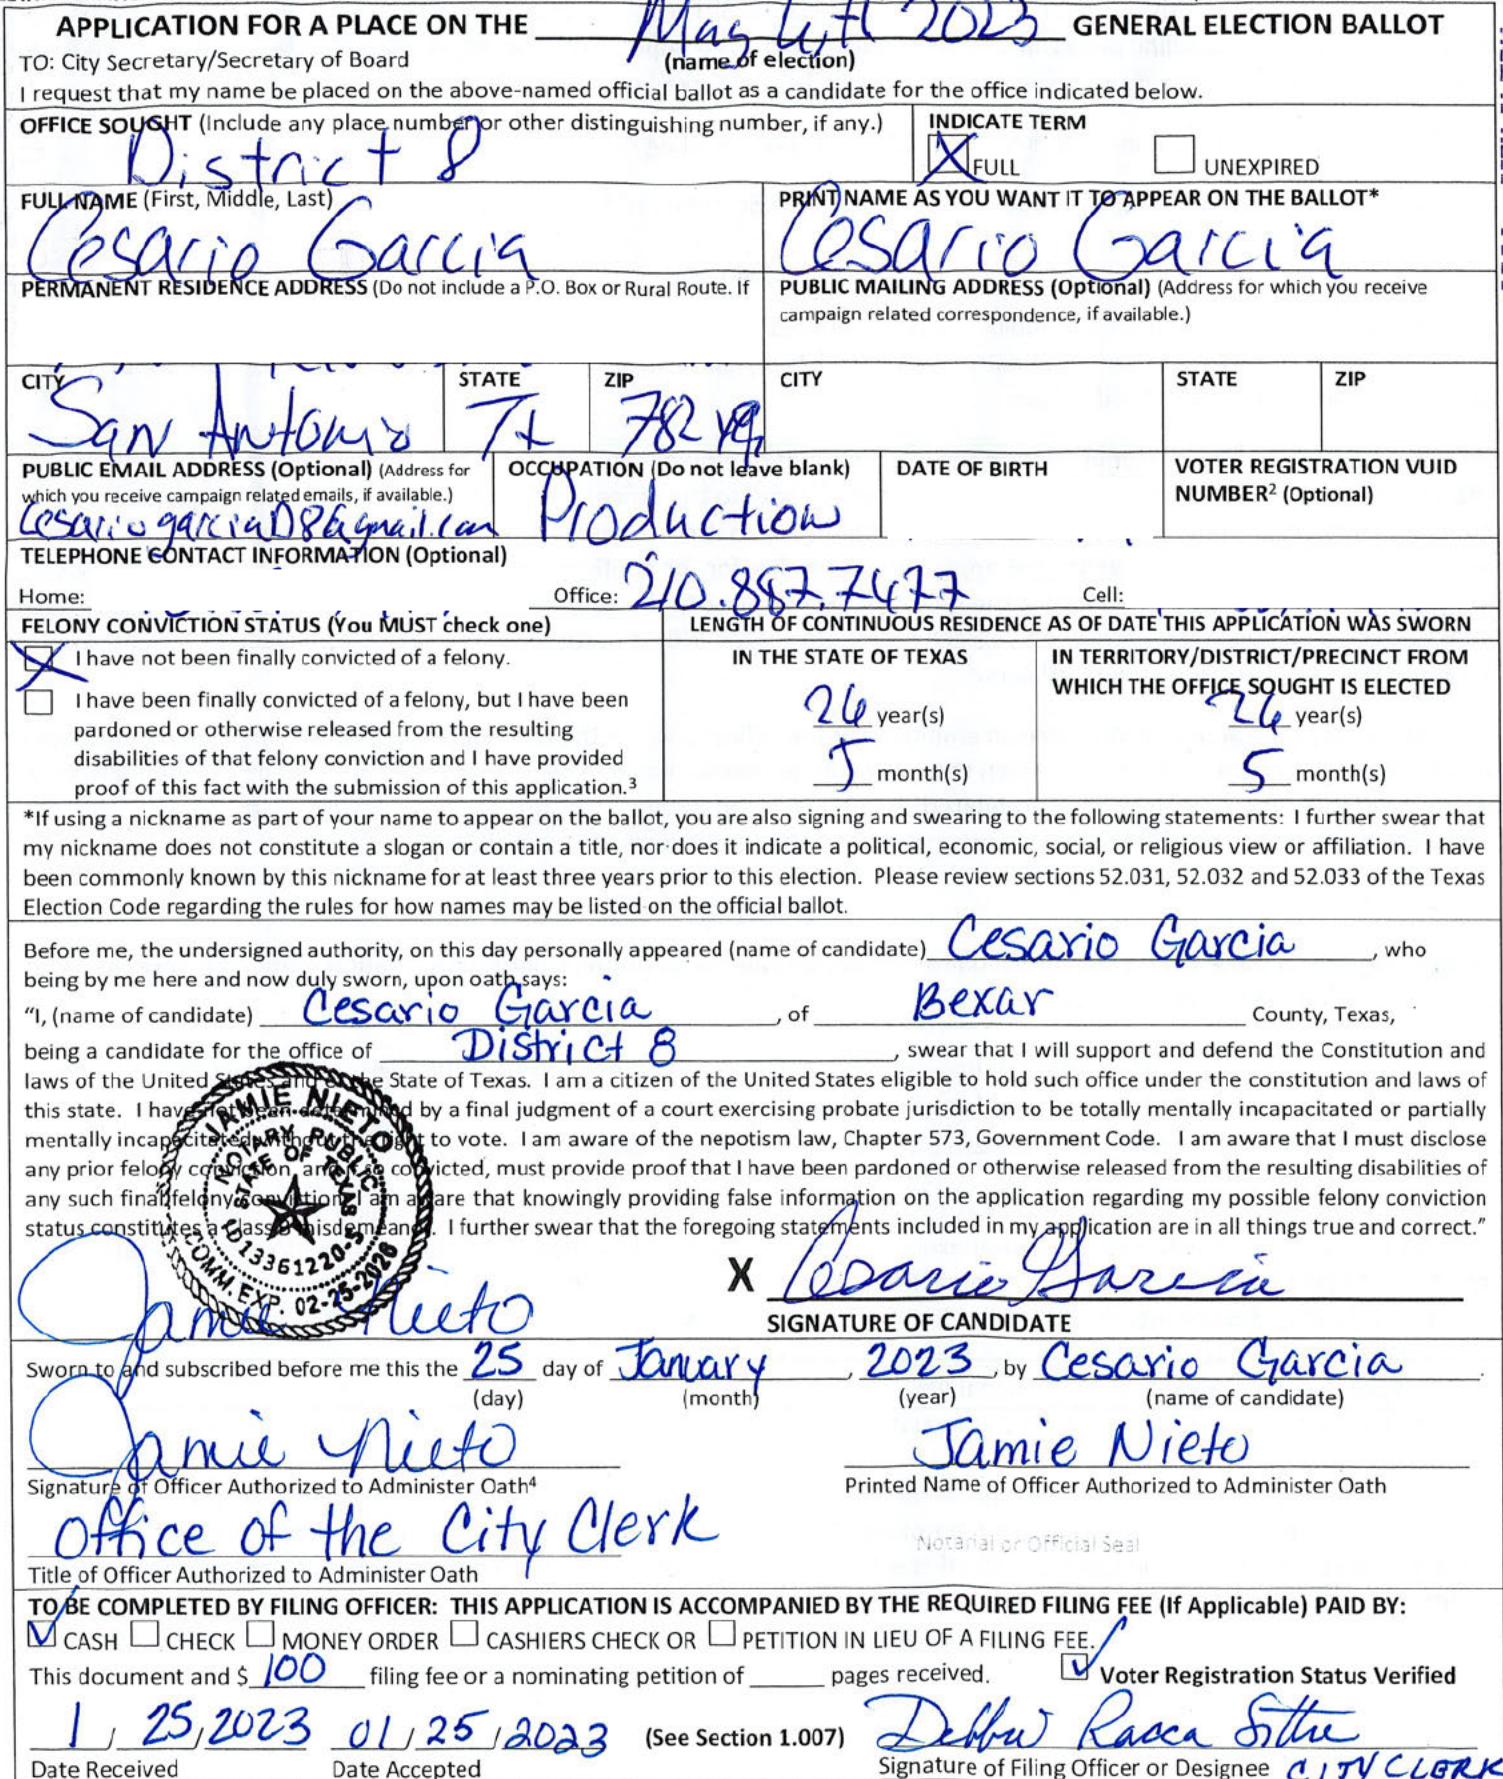 APPLICATION FOR A PLACE ON THE May 6th 2023 GENERAL ELECTION BALLOT
TO: City Secretary/Secretary of Board (name of election)
I request that my name be placed on the above-named official ballot as a candidate for the office indicated below.
OFFICE SOUGHT (Include any place number or other distinguishing number, if any.)
District 8
INDICATE TERM
X FULL UNEXPIRED
FULL NAME (First, Middle, Last)
Cesario Garcia
PRINT NAME AS YOU WANT IT TO APPEAR ON THE BALLOT*
Cesario Garcia
PERMANENT RESIDENCE ADDRESS (Do not include a P.O. Box or Rural Route. If
PUBLIC MAILING ADDRESS (Optional) (Address for which you receive
campaign related correspondence, if available.)
CITY STATE ZIP CITY STATE ZIP
San Antonio Tx
PUBLIC EMAIL ADDRESS (Optional) (Address for
which you receive campaign related emails, if available.)
CesariogarciaD8@gmail.com
OCCUPATION (Do not leave blank)
Production
DATE OF BIRTH
VOTER REGISTRATION VUID
NUMBER² (Optional)
TELEPHONE CONTACT INFORMATION (Optional)
Home: Office: 210.887.7477 Cell:
FELONY CONVICTION STATUS (You MUST check one)
X I have not been finally convicted of a felony.
I have been finally convicted of a felony, but I have been
pardoned or otherwise released from the resulting
disabilities of that felony conviction and I have provided
proof of this fact with the submission of this application.³
LENGTH OF CONTINUOUS RESIDENCE AS OF DATE THIS APPLICATION WAS SWORN
IN THE STATE OF TEXAS
26 year(s)
5 month(s)
IN TERRITORY/DISTRICT/PRECINCT FROM
WHICH THE OFFICE SOUGHT IS ELECTED
26 year(s)
5 month(s)
*If using a nickname as part of your name to appear on the ballot, you are also signing and swearing to the following statements: I further swear that
my nickname does not constitute a slogan or contain a title, nor does it indicate a political, economic, social, or religious view or affiliation. I have
been commonly known by this nickname for at least three years prior to this election. Please review sections 52.031, 52.032 and 52.033 of the Texas
Election Code regarding the rules for how names may be listed on the official ballot.
Before me, the undersigned authority, on this day personally appeared (name of candidate) Cesario Garcia, who
being by me here and now duly sworn, upon oath says:
"I, (name of candidate) Cesario Garcia, of Bexar County, Texas,
being a candidate for the office of District 8, swear that I will support and defend the Constitution and
laws of the United States and of the State of Texas. I am a citizen of the United States eligible to hold such office under the constitution and laws of
this state. I have not been determined by a final judgment of a court exercising probate jurisdiction to be totally mentally incapacitated or partially
mentally incapacitated without the right to vote. I am aware of the nepotism law, Chapter 573, Government Code. I am aware that I must disclose
any prior felony conviction, and if so convicted, must provide proof that I have been pardoned or otherwise released from the resulting disabilities of
any such final felony conviction. I am aware that knowingly providing false information on the application regarding my possible felony conviction
status constitutes a Class B misdemeanor. I further swear that the foregoing statements included in my application are in all things true and correct."
JAMIE NIETO
NOTARY PUBLIC
STATE OF TEXAS
ID 13361220-5
COMM. EXP. 02-25-2026
Jamie Nieto
X Cesario Garcia
SIGNATURE OF CANDIDATE
Sworn to and subscribed before me this the 25 day of January, 2023, by Cesario Garcia.
(day) (month) (year) (name of candidate)
Jamie Nieto Jamie Nieto
Signature of Officer Authorized to Administer Oath⁴ Printed Name of Officer Authorized to Administer Oath
Office of the City Clerk
Notarial or Official Seal
Title of Officer Authorized to Administer Oath
TO BE COMPLETED BY FILING OFFICER: THIS APPLICATION IS ACCOMPANIED BY THE REQUIRED FILING FEE (If Applicable) PAID BY:
CASH CHECK MONEY ORDER CASHIERS CHECK OR PETITION IN LIEU OF A FILING FEE.
This document and $ 100 filing fee or a nominating petition of pages received. Voter Registration Status Verified
1/25/2023 01/25/2023 (See Section 1.007) Debbie Racca Sittre
Date Received Date Accepted Signature of Filing Officer or Designee CITY CLERK